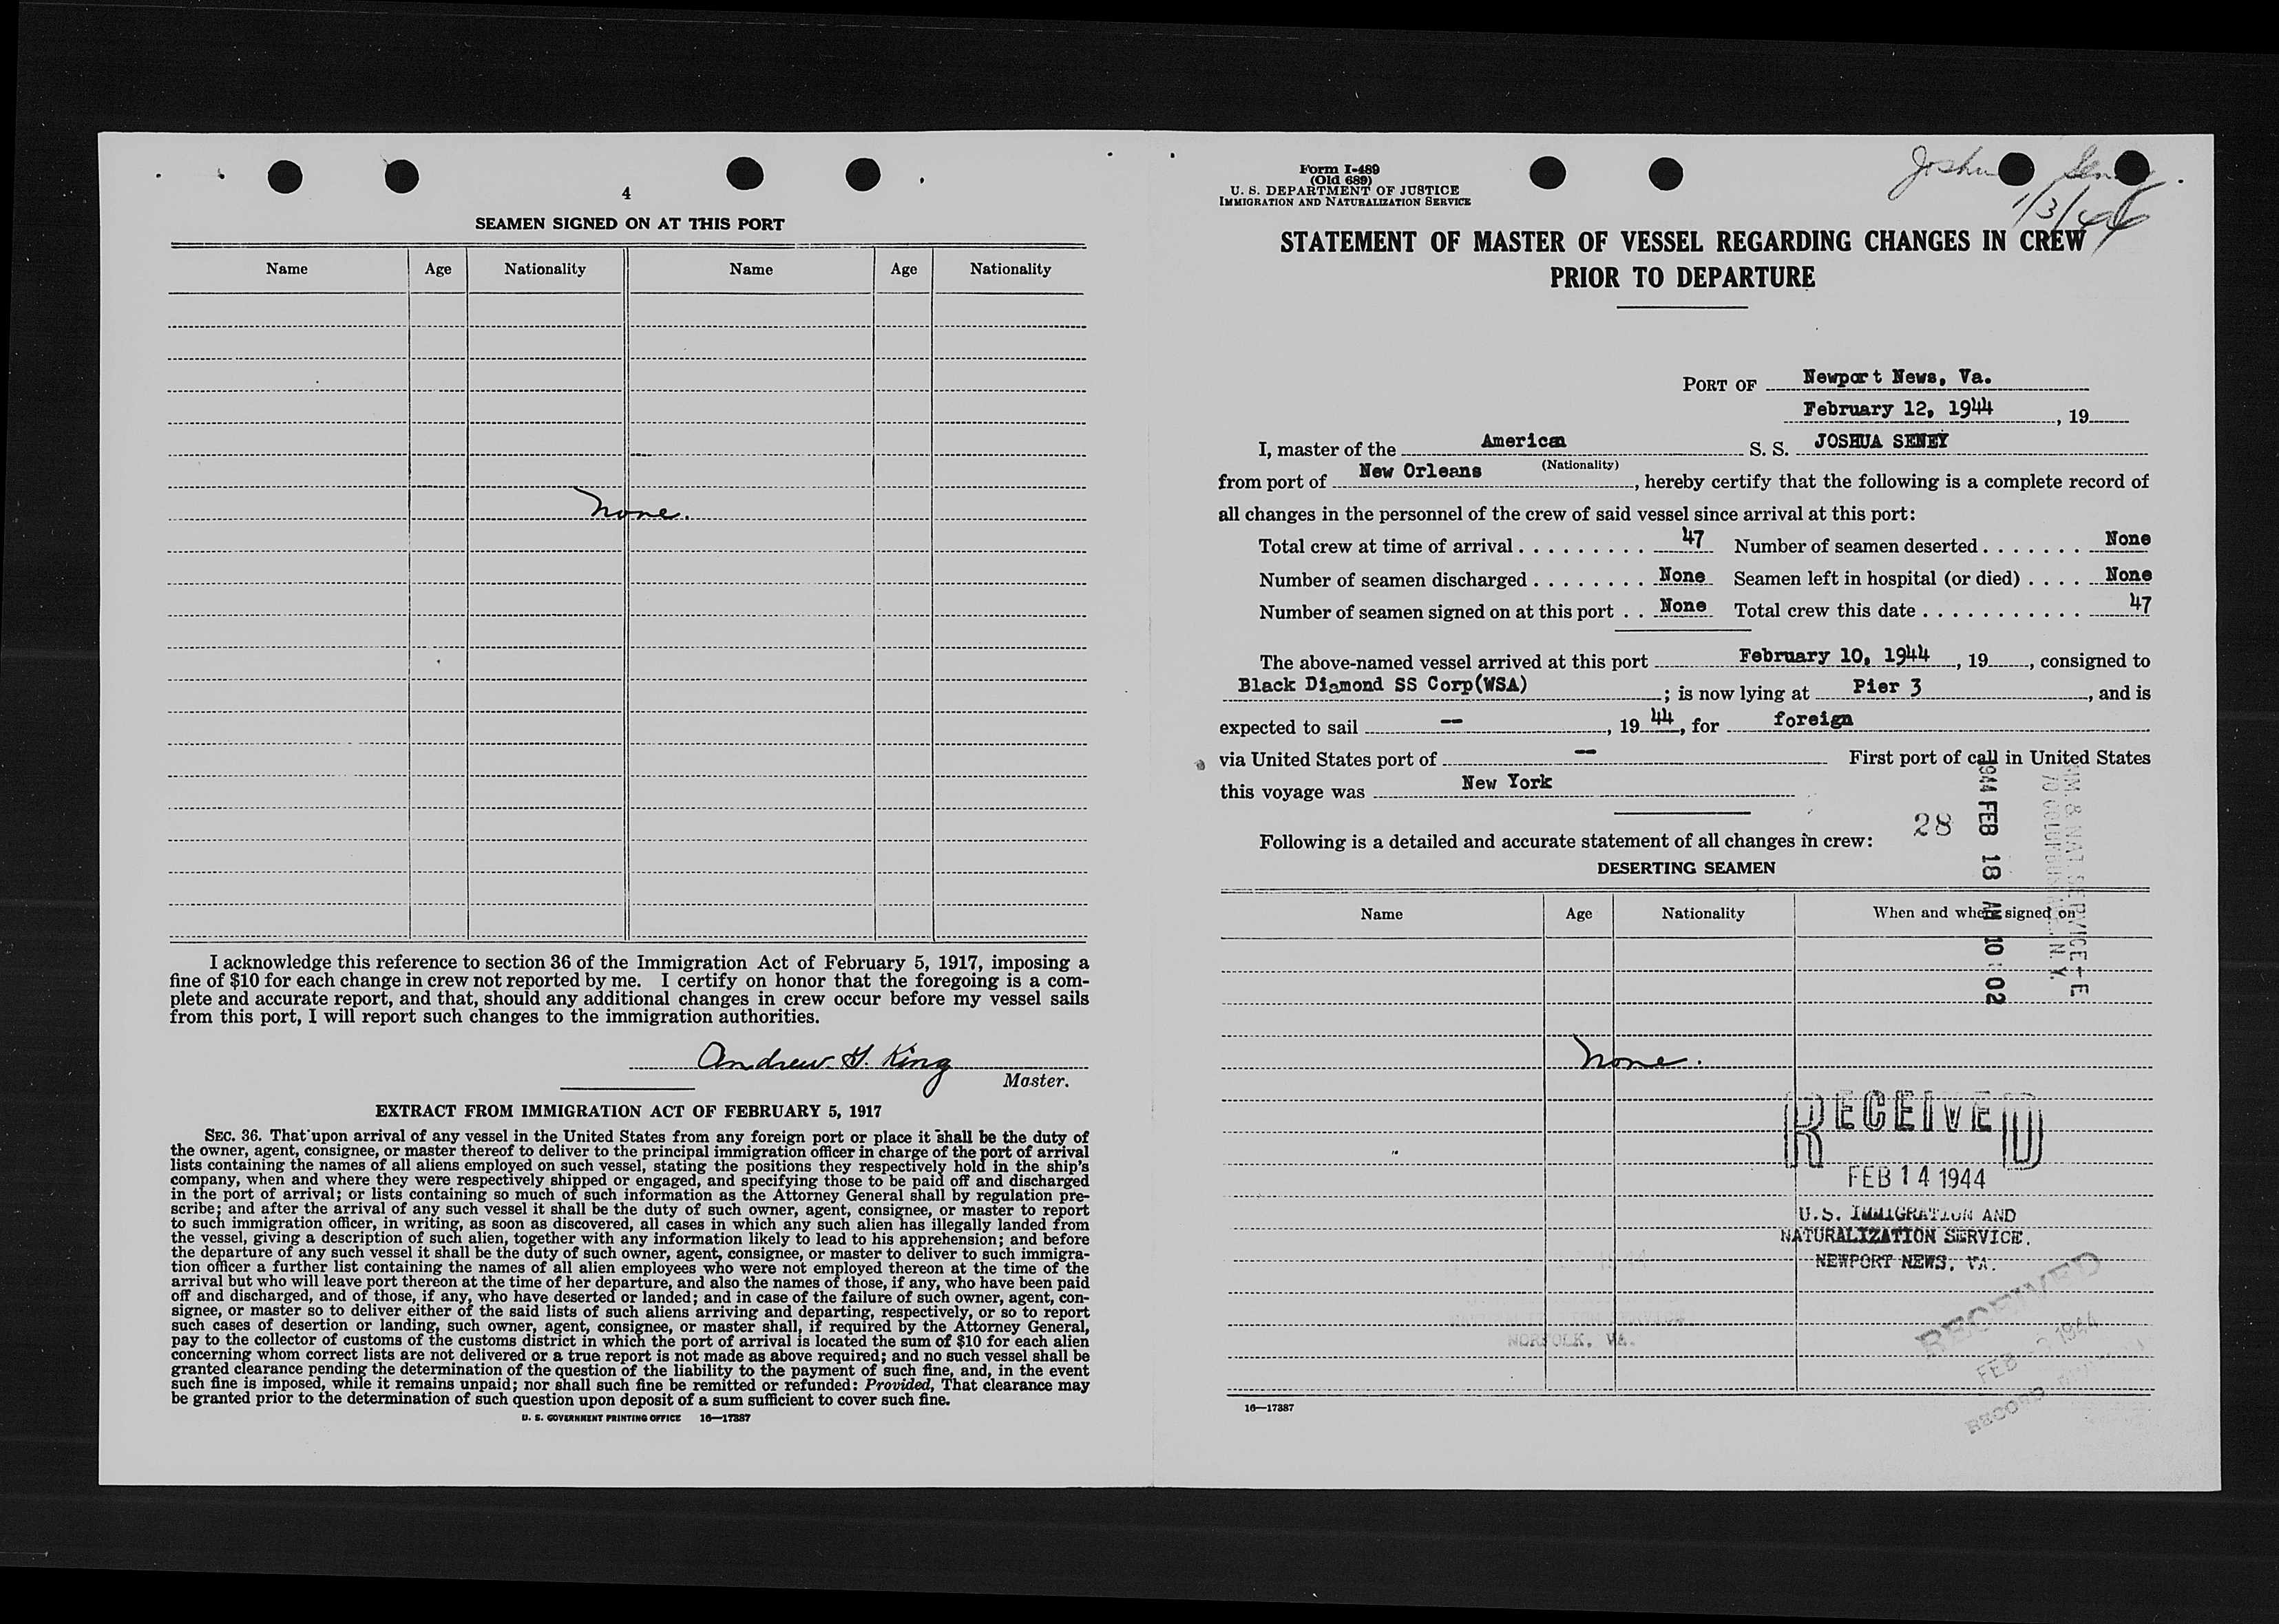 4
SEAMEN SIGNED ON AT THIS PORT
Name Age Nationality Name Age Nationality
None.
I acknowledge this reference to section 36 of the Immigration Act of February 5, 1917, imposing a
fine of $10 for each change in crew not reported by me. I certify on honor that the foregoing is a com-
plete and accurate report, and that, should any additional changes in crew occur before my vessel sails
from this port, I will report such changes to the immigration authorities.
Andrew H. King
Master.
EXTRACT FROM IMMIGRATION ACT OF FEBRUARY 5, 1917
SEC. 36. That upon arrival of any vessel in the United States from any foreign port or place it shall be the duty of
the owner, agent, consignee, or master thereof to deliver to the principal immigration officer in charge of the port of arrival
lists containing the names of all aliens employed on such vessel, stating the positions they respectively hold in the ship's
company, when and where they were respectively shipped or engaged, and specifying those to be paid off and discharged
in the port of arrival; or lists containing so much of such information as the Attorney General shall by regulation pre-
scribe; and after the arrival of any such vessel it shall be the duty of such owner, agent, consignee, or master to report
to such immigration officer, in writing, as soon as discovered, all cases in which any such alien has illegally landed from
the vessel, giving a description of such alien, together with any information likely to lead to his apprehension; and before
the departure of any such vessel it shall be the duty of such owner, agent, consignee, or master to deliver to such immigra-
tion officer a further list containing the names of all alien employees who were not employed thereon at the time of the
arrival but who will leave port thereon at the time of her departure, and also the names of those, if any, who have been paid
off and discharged, and of those, if any, who have deserted or landed; and in case of the failure of such owner, agent, con-
signee, or master so to deliver either of the said lists of such aliens arriving and departing, respectively, or so to report
such cases of desertion or landing, such owner, agent, consignee, or master shall, if required by the Attorney General,
pay to the collector of customs of the customs district in which the port of arrival is located the sum of $10 for each alien
concerning whom correct lists are not delivered or a true report is not made as above required; and no such vessel shall be
granted clearance pending the determination of the question of the liability to the payment of such fine, and, in the event
such fine is imposed, while it remains unpaid; nor shall such fine be remitted or refunded: Provided, That clearance may
be granted prior to the determination of such question upon deposit of a sum sufficient to cover such fine.
U. S. GOVERNMENT PRINTING OFFICE 16—17387
Form I-489
(Old 689)
U. S. DEPARTMENT OF JUSTICE
IMMIGRATION AND NATURALIZATION SERVICE
STATEMENT OF MASTER OF VESSEL REGARDING CHANGES IN CREW
PRIOR TO DEPARTURE
PORT OF Newport News, Va.
February 12, 1944, 19
I, master of the American S. S. JOSHUA SENEY
(Nationality)
from port of New Orleans, hereby certify that the following is a complete record of
all changes in the personnel of the crew of said vessel since arrival at this port:
Total crew at time of arrival 47 Number of seamen deserted None
Number of seamen discharged None Seamen left in hospital (or died) None
Number of seamen signed on at this port None Total crew this date 47
The above-named vessel arrived at this port February 10, 1944, 19, consigned to
Black Diamond SS Corp(WSA); is now lying at Pier 3, and is
expected to sail --, 19 44, for foreign
via United States port of -- First port of call in United States
this voyage was New York
28
Following is a detailed and accurate statement of all changes in crew:
DESERTING SEAMEN
Name Age Nationality When and where signed on
1944 FEB 18 AM 10 02
None.
RECEIVED
FEB 14 1944
U.S. IMMIGRATION AND
NATURALIZATION SERVICE.
NEWPORT NEWS, VA.
NORFOLK, VA.
RECEIVED
16—17387